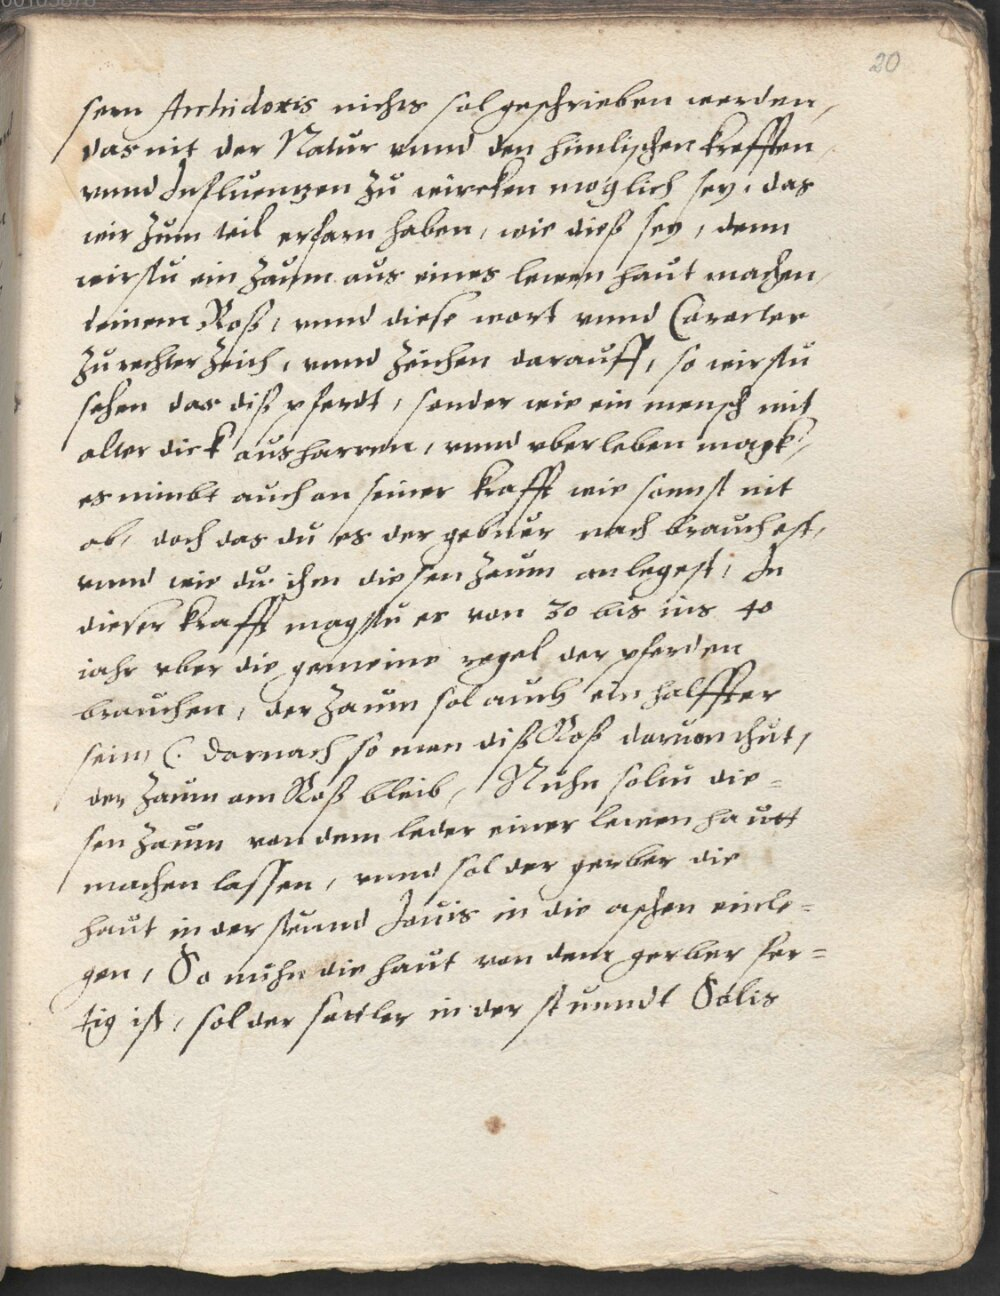 20
sern Archidoxis nichts sol geschrieben werden,
das nit der Natur vnnd den himlischen krefften,
vnnd Influentzen zu wircken moglich sey, das
wir zum teil erfarn haben, wie dieß sey, denn
wirstu ein Zaum aus eines lewen haut machen,
deinem Roß, vnnd diese wort vnnd Caracter
zu rechter Zeich, vnnd Zeichen darauff, so wirstu
sehen das diß pferdt, sonder wie ein mensch mit
alter dick ausharren, vnnd vberleben magk,
es nimbt auch an seiner krafft wie sonnst nit
ab, doch das du es der gebuer nach brauchest,
vnnd wie du ihm diesen Zaum anlegest, In
dieser krafft magstu es von 30 bis ins 40
iahr vber die gemeine regel der pferden
brauchen, der Zaum sol auch ein halffter
sein, (. darnach so man diß Roß daruon thut,
der Zaum am Roß bleib, Nuhn soltu die=
sen Zaum von dem leder einer lewen hautt
machen lassen, vnnd sol der gerber die
haut in der stunnd Jouis in die aschen einle=
gen, So nuhn die haut von dem gerber fer=
tig ist, sol der sattler in der stunndt Solis